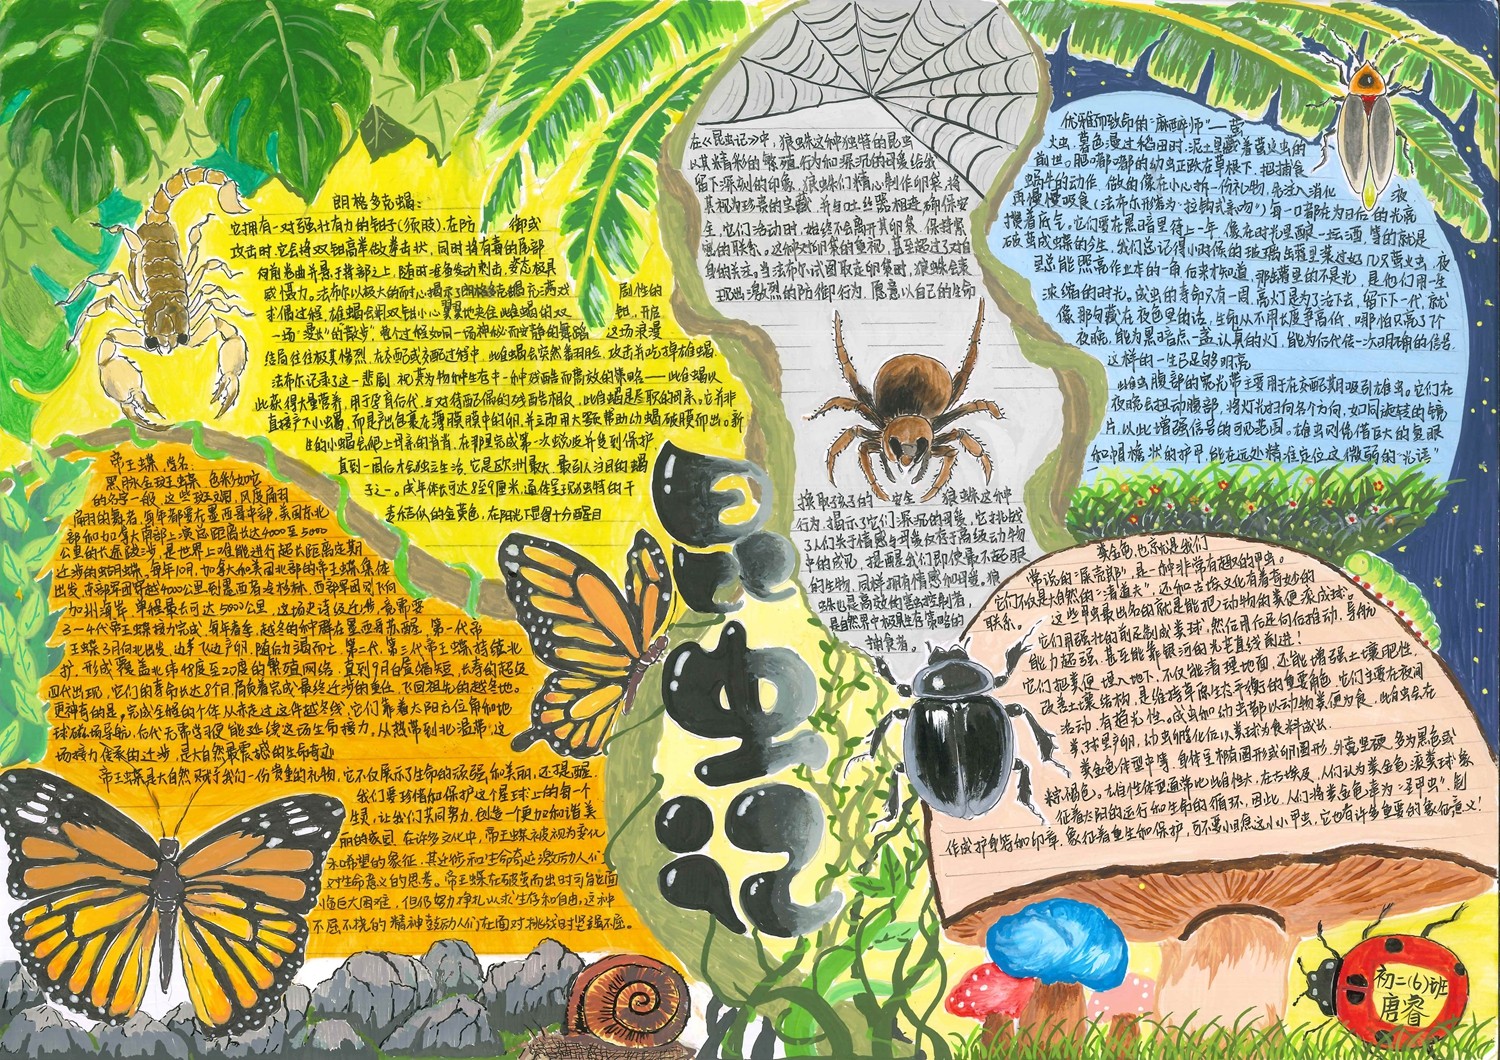 朗格多克蝎:
它拥有一对强壮有力的钳子(须肢),在防御或
攻击时,它会将双钳高举做拳击状,同时将有毒的尾部
向前卷曲并悬于背部之上,随时准备发动刺击,姿态极具
威慑力。法布尔以极大的耐心揭示了朗格多克蝎充满戏剧性的
求偶过程,雄蝎会用双钳小心翼翼地夹住雌蝎的双钳,开启
一场"漫长"的散步,整个过程如同一场神秘而安静的舞蹈 这场浪漫
结局往往极其惨烈,在交配或交配过程中,雌蝎会突然翻脸,攻击并吃掉雄蝎.
法布尔记录了这一悲剧,视其为物种生存中一种残酷而高效的策略——此雌蝎以
此获得大量营养,用于孕育后代,与对待配偶的残酷相反,此雌蝎是尽职的母亲。它并非
直接产下小蝎,而是产出包裹在薄膜中的卵,并立即用大颚帮助幼蝎破膜而出。新
生的小蝎会爬上母亲的背脊,在那里完成第一次蜕皮并受到保护,
直到一周后才独立生活,它是欧洲最大、最引人注目的蝎
子之一。成年体长可达8至9厘米,通体呈现出独特的干
麦秸似的金黄色,在阳光下显得十分醒目
帝王蝶,学名:
黑脉金斑蝶 色彩如蛇
的名字一般,这些斑斓、风度翩翩
扇羽的舞者,每年都要在墨西哥中部、美国东北
部和加拿大南部上演总距离长达4000至5000
公里的长途跋涉,是世界上唯能进行超长距离定期
迁徙的蝴蝶。每年10月,加拿大和美国北部的帝王蝶集体
加州海岸,单程最长可达5000公里,这场史诗级迁徙,竟需要
3—4代帝王蝶接力完成,每年春季,越冬的种群在墨西哥苏醒,第一代帝
王蝶3月向北出发,边羊飞边产卵,随后力竭而亡,第二代、第三代帝王蝶持续北
扩,形成覆盖北纬48度至20度的繁殖网络,直到9月白昼缩短,长寿的超级
四代出现,它们的寿命长达8个月,肩负着完成最终迁徙的重任,飞回祖先的越冬地。
更神奇的是,完成全程的个体从未走过这件越冬线,它们靠着太阳方位角和地
球磁场导航,后代无需学习便能延续这场生命接力,从热带到北温带,这
场接力传承的迁徙,是大自然最震撼的生命奇迹
帝王蝶是大自然赋予我们一份贵重的礼物,它不仅展示了生命的顽强和美丽,还提醒
我们要珍惜和保护这个星球上的每一个
生灵,让我们共同努力,创造一个更加和谐美
丽的家园 在许多文化中,帝王蝶被视为变化
和希望的象征,其迁徙和生命奇迹激励人们
对生命意义的思考。帝王蝶在破茧而出时可能面
临巨大困难,但仍努力挣扎以求生存和自由,这种
不屈不挠的精神鼓励人们在面对挑战时坚强不屈。
昆虫记
在《昆虫记》中,狼蛛这种独特的昆虫
以其精彩的繁殖行为和深沉的母爱给我
留下深刻的印象。狼蛛们精心制作卵袋,将
其视为珍贵的宝藏,并与吐丝器相连,确保安
全,它们活动时,始终不会离开其卵袋,保持紧
密的联系。这种对卵袋的重视,甚至超过了对自
身的关注。当法布尔试图取走卵袋时,狼蛛会表
现出激烈的防御行为,愿意以自己的生命
换取孩子的 安全 狼蛛这种
行为,揭示了它们深沉的母爱,它挑战
了人们关于情感与母爱仅存于高级动物
中的成见,提醒我们即使最不起眼
的生物,同样拥有情感和母爱,狼
蛛也是高效的害虫控制者,
是自然界中极具生存策略的
捕食者。
优雅而致命的"麻醉师"——萤
火虫,暮色漫过稻田时,泥土里藏着萤火虫的
前世。胖嘟嘟的幼虫正趴在草根下,把捕食
蜗牛的动作,做的像在小心拆一份礼物,先注入消化
再慢慢吸食(法布尔形容为"拉钩式亲吻")每一口都在为日后的光亮
攒着底气。它们要在黑暗里待上一年,像在时光里酿一坛酒,等的就是
破茧成蝶的夕生,我们总记得小时候的玻璃罐里装过好几只萤火虫,夜
里总能照亮作业本的一角,后来才知道,那罐里的不是光,是他们用一生
浓缩的时光。成虫的寿命只有一周,亮灯是为了活下去,留下下一代,就
像那句藏在夜色里的话,生命从不用长度争高低,哪怕只亮了7个
夜晚,能为黑暗点一盏认真的灯,能为后代传一次明确的信号
这样的一生已足够明亮
此虫腹部的荧光带主要用于在交配期吸引雄虫。它们在
夜晚会扭动腹部,将灯光扫向各个方向,如同旋转的镜
片,以此增强信号的可见范围。雄虫则凭借巨大的复眼
和帽檐状的护甲,能在远处精准定位这微弱的"光语"
粪金龟,也就是我们
常说的"屎壳郎",是一种非常有趣的甲虫。
它们不仅是大自然的"清道夫",还和古埃及文化有着奇妙的
联系。这些甲虫最出名的就是能把动物的粪便滚成球。
它们用强壮的前足制成粪球,然后用后足向后推动,导航
能力超强,甚至能靠银河的光走直线前进!
它们把粪便埋入地下,不仅能清理地面,还能增强土壤肥性,
改善土壤结构,是维持草原生态平衡的重要角色,它们主要在夜间
活动,有趋光性。成虫和幼虫都以动物粪便为食,此雌虫会在
粪球里产卵,幼虫孵化后以粪球为食料成长
粪金龟体型中等,身体呈椭圆形或卵圆形,外壳坚硬,多为黑色或
棕褐色。大自体型通常比雌自性大,在古埃及,人们认为粪金龟滚粪球象
征着太阳的运行和生命的循环,因此,人们将粪金龟尊为"圣甲虫",刻
作成护身符和印章,象征着重生和保护,可不要小瞧这小小甲虫,它也有许多重要的象征意义!
初二(6)班
唐睿